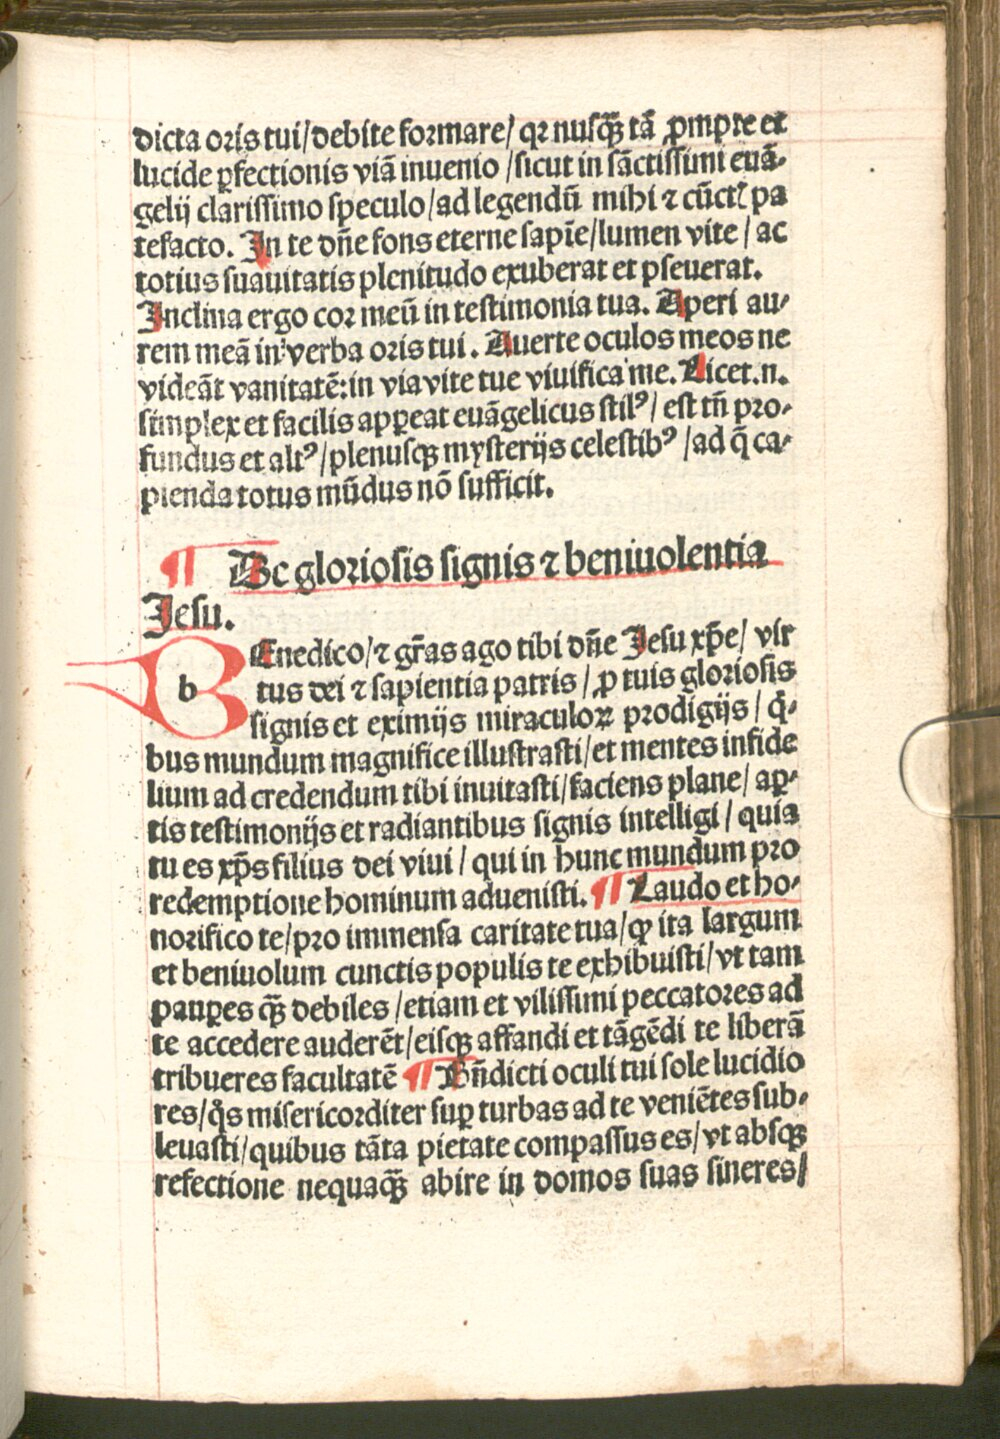 dicta oris tui/debite formare/ qꝛ nusꝙ̄ tā ꝓmpte et
lucide ꝑfectionis viā inuenio/sicut in sāctissimi euā-
gelij clarissimo speculo/ad legendū mihi ⁊ cūctꝭ pa
tefacto. In te dn̄e fons eterne sapīe/lumen vite/ ac
totius suauitatis plenitudo exuberat et pseuerat.
Inclina ergo cor meū in testimonia tua. Aperi au-
rem meā in verba oris tui. Auerte oculos meos ne
videāt vanitatē: in via vite tue viuifica me. Licet.n.
simplex et facilis appeat euāgelicus stilꝰ/ est tn̄ pro-
fundus et altꝰ/plenusqꝫ mysterijs celestibꝰ/ad q̄ ca-
pienda totus mūdus nō sufficit.
¶ De gloriosis signis ⁊ beniuolentia
Jesu.
bEnedico/⁊ gr̄as ago tibi dn̄e Jesu xp̄e/ vir
tus dei ⁊ sapientia patris/ꝓ tuis gloriosis
signis et eximijs miraculoꝝ prodigijs/ q̇-
bus mundum magnifice illustrasti/et mentes infide
lium ad credendum tibi inuitasti/faciens plane/ aꝑ-
tis testimonijs et radiantibus signis intelligi/ quia
tu es xp̄s filius dei viui/ qui in hunc mundum pro
redemptione hominum aduenisti. ¶ Laudo et ho-
norifico te/pro immensa caritate tua/ꝙ ita largum
et beniuolum cunctis populis te exhibuisti/vt tam
pauꝑes ꝙ̄ debiles/etiam et vilissimi peccatores ad
te accedere auderēt/eisqꝫ affandi et tāgēdi te liberā
tribueres facultatē ¶ Bn̄dicti oculi tui sole lucidio
res/q̊s misericorditer suꝑ turbas ad te veniētes sub-
leuasti/quibus tāta pietate compassus es/vt absqꝫ
refectione nequaꝙ̄ abire in domos suas sineres/